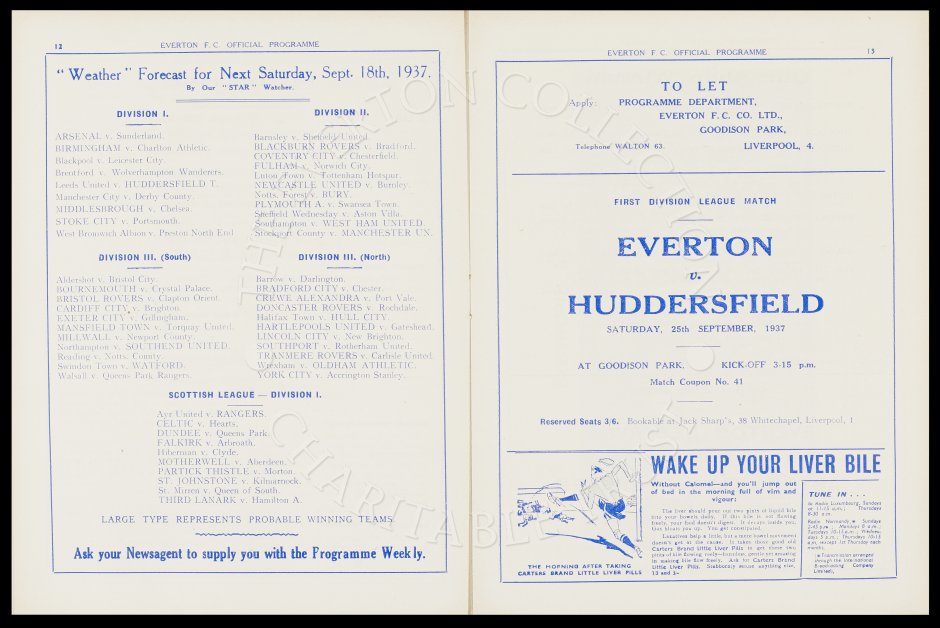 12
EVERTON F. C. OFFICIAL PROGRAMME
"Weather" Forecast for Next Saturday, Sept. 18th, 1937.
By Our "STAR" Watcher.
DIVISION I.
ARSENAL v. Sunderland.
BIRMINGHAM v. Charlton Athletic.
Blackpool v. Leicester City.
Brentford v. Wolverhampton Wanderers.
Leeds United v. HUDDERSFIELD T.
Manchester City v. Derby County.
MIDDLESBROUGH v. Chelsea.
STOKE CITY v. Portsmouth.
West Bromwich Albion v. Preston North End
DIVISION II.
Barnsley v. Sheffield United.
BLACKBURN ROVERS v. Bradford.
COVENTRY CITY v. Chesterfield.
FULHAM v. Norwich City.
Luton Town v. Tottenham Hotspur.
NEWCASTLE UNITED v. Burnley.
Notts. Forest v. BURY.
PLYMOUTH A. v. Swansea Town.
Sheffield Wednesday v. Aston Villa.
Southampton v. WEST HAM UNITED.
Stockport County v. MANCHESTER UN.
DIVISION III. (South)
Aldershot v. Bristol City.
BOURNEMOUTH v. Crystal Palace.
BRISTOL ROVERS v. Clapton Orient.
CARDIFF CITY v. Brighton.
EXETER CITY v. Gillingham.
MANSFIELD TOWN v. Torquay United.
MILLWALL v. Newport County.
Northampton v. SOUTHEND UNITED.
Reading v. Notts. County.
Swindon Town v. WATFORD.
Walsall v. Queens Park Rangers.
DIVISION III. (North)
Barrow v. Darlington.
BRADFORD CITY v. Chester.
CREWE ALEXANDRA v. Port Vale.
DONCASTER ROVERS v. Rochdale.
Halifax Town v. HULL CITY.
HARTLEPOOLS UNITED v. Gateshead.
LINCOLN CITY v. New Brighton.
SOUTHPORT v. Rotherham United.
TRANMERE ROVERS v. Carlisle United.
Wrexham v. OLDHAM ATHLETIC.
YORK CITY v. Accrington Stanley.
SCOTTISH LEAGUE — DIVISION I.
Ayr United v. RANGERS.
CELTIC v. Hearts.
DUNDEE v. Queens Park.
FALKIRK v. Arbroath.
Hibernian v. Clyde.
MOTHERWELL v. Aberdeen.
PARTICK THISTLE v. Morton.
ST. JOHNSTONE v. Kilmarnock.
St. Mirren v. Queen of South.
THIRD LANARK v. Hamilton A.
LARGE TYPE REPRESENTS PROBABLE WINNING TEAMS
Ask your Newsagent to supply you with the Programme Weekly.
EVERTON F. C. OFFICIAL PROGRAMME
13
TO LET
Apply: PROGRAMME DEPARTMENT,
EVERTON F. C. CO. LTD.,
GOODISON PARK,
Telephone WALTON 63. LIVERPOOL, 4.
FIRST DIVISION LEAGUE MATCH
EVERTON
v.
HUDDERSFIELD
SATURDAY, 25th SEPTEMBER, 1937
AT GOODISON PARK. KICK-OFF 3-15 p.m.
Match Coupon No. 41
Reserved Seats 3/6. Bookable at Jack Sharp's, 38 Whitechapel, Liverpool, 1
THE MORNING AFTER TAKING
CARTERS BRAND LITTLE LIVER PILLS
WAKE UP YOUR LIVER BILE
Without Calomel—and you'll jump out
of bed in the morning full of vim and
vigour:
The liver should pour out two pints of liquid bile
into your bowels daily. If this bile is not flowing
freely, your food doesn't digest. It decays inside you.
Gas bloats you up. You get constipated.
Laxatives help a little, but a mere bowel movement
doesn't get at the cause. It takes those good old
Carters Brand Little Liver Pills to get these two
pints of bile flowing freely—harmless, gentle yet amazing
in making bile flow freely. Ask for Carters Brand
Little Liver Pills. Stubbornly refuse anything else.
1/3 and 3/-
TUNE IN . . .
to Radio Luxembourg, Sundays
at 11-15 a.m.; Thursdays
8-30 a.m.
Radio Normandy, Sundays
2-45 p.m.; Mondays
Tuesdays 10-15 a.m.; Wednes-
days 5 p.m.; Thursdays 10-15
a.m. except 1st Thursday each
month.
Transmission arranged
through the International
Broadcasting Company
Limited.
THE EVERTON COLLECTION
CHARITABLE